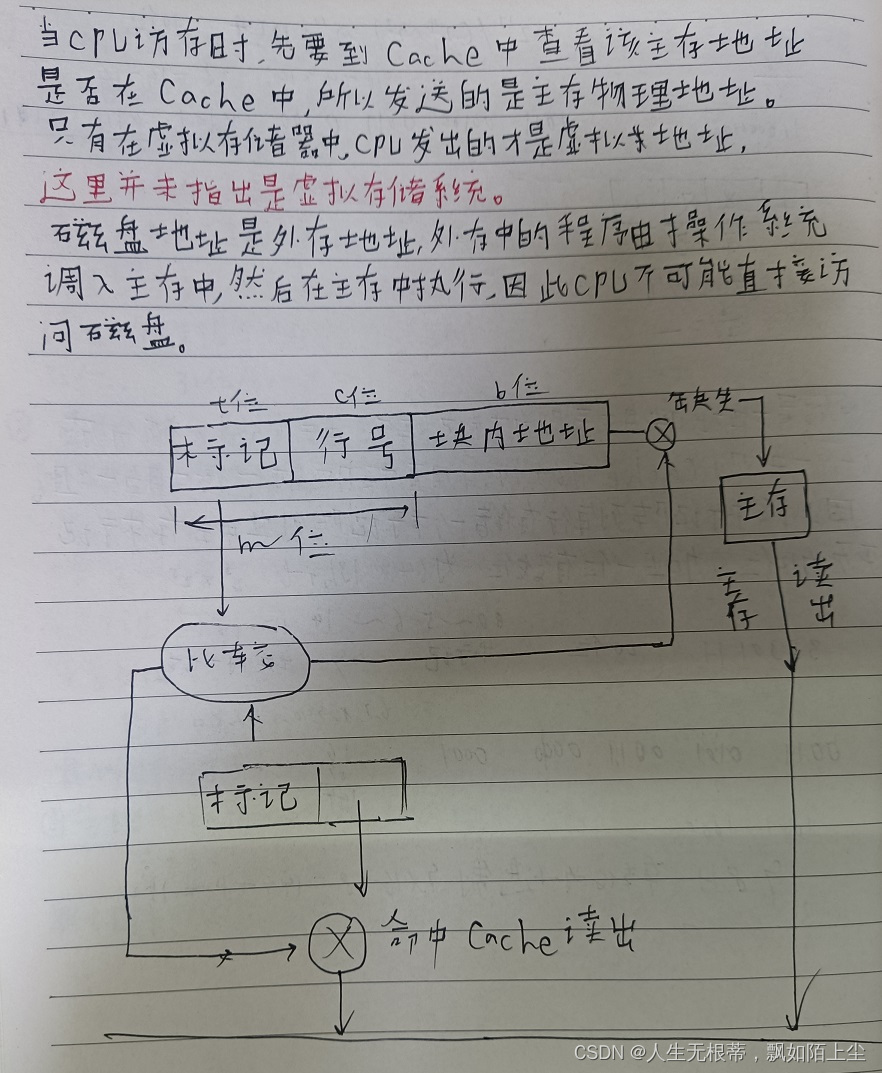 当CPU访存时,先要到Cache中查看该主存地址
是否在Cache中,所以发送的是主存物理地址。
只有在虚拟存储器中,CPU发出的才是虚拟地址,
这里并未指出是虚拟存储系统。
磁盘地址是外存地址,外存中的程序由操作系统
调入主存中,然后在主存中执行,因此CPU不可能直接访
问磁盘。
t位 c位 b位
标记 行号 块内地址
缺失
主存
m位
主存 读出
比较
标记
命中 Cache读出
CSDN @人生无根蒂，飘如陌上尘